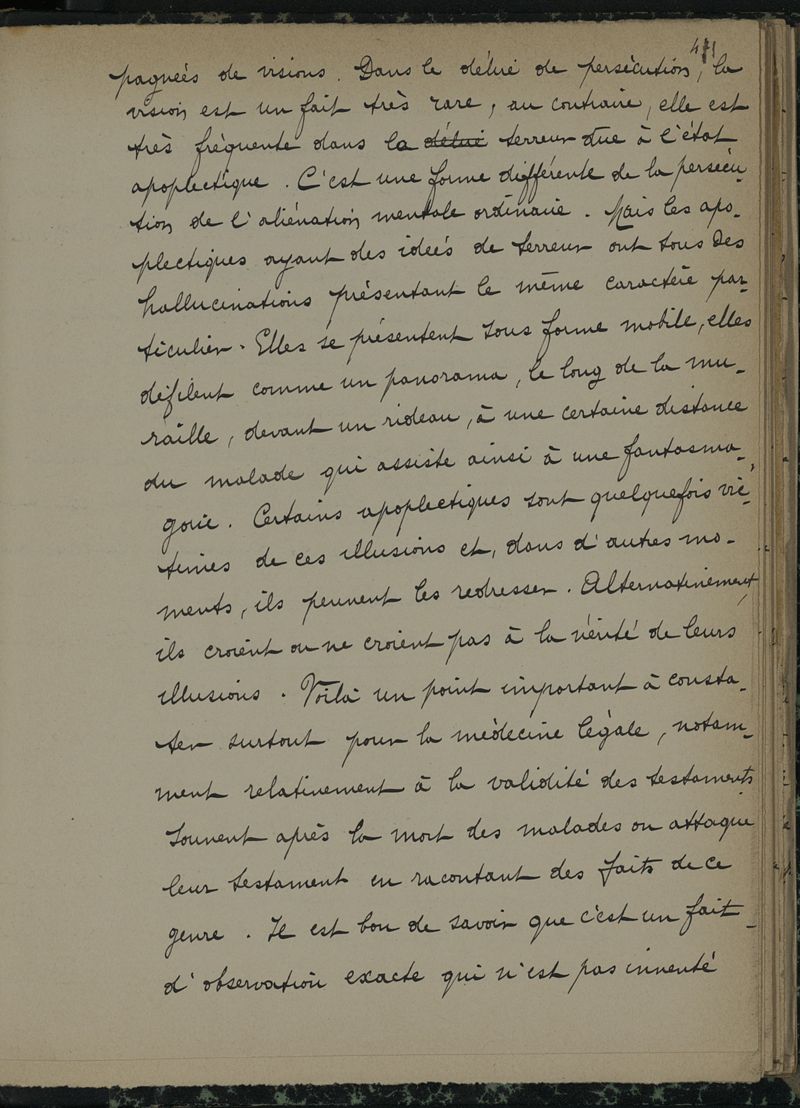 pagnées de visions. Dans le délire de persécution, la
vision est un fait très rare, au contraire, elle est
très fréquente dans la délire terreur due à l'état
apoplectique. C'est une forme différente de la persécu-
tion de l'aliénation mentale ordinaire. Mais les apo-
plectiques ayant des idées de terreur ont tous des
hallucinations présentant le même caractère par-
ticulier. Elles se présentent sous forme mobile, elles
défilent comme un panorama, le long de la mu-
raille, devant un rideau, à une certaine distance
du malade qui assiste ainsi à une fantasma-
gorie. Certains apoplectiques sont quelquefois vic-
times de ces illusions et, dans d'autres mo-
ments, ils peuvent les redresser. Alternativement
ils croient ou ne croient pas à la vérité de leurs
illusions. Voilà un point important à consta-
ter surtout pour la médecine légale, notam-
ment relativement à la validité des testaments
Souvent après la mort des malades on attaque
leur testament en racontant des faits de ce
genre. Il est bon de savoir que c'est un fait
d'observation exacte qui n'est pas inventé